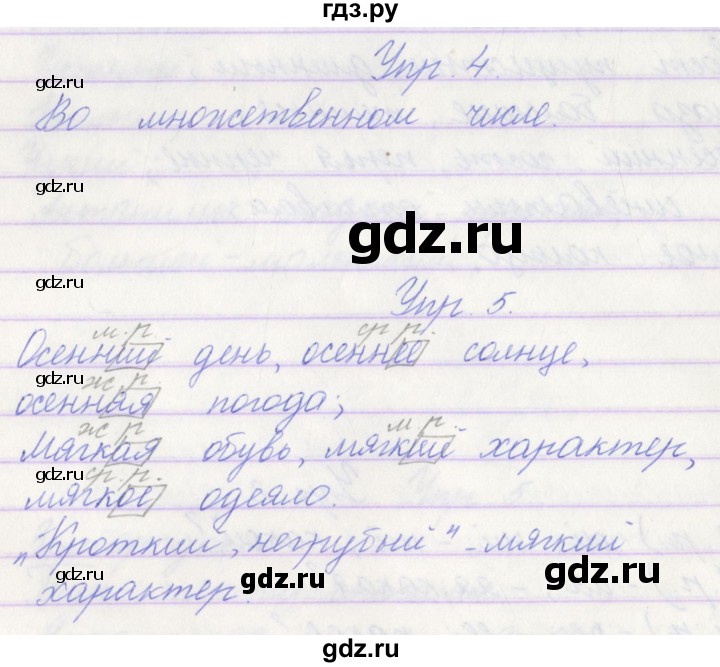 гдз.ру
gdz.ru
Упр. 4.
Во множественном числе.
gdz.ru
gdz.ru
gdz.ru
Упр. 5.
м. р. ср. р.
Осенний день, осеннее солнце,
gdz.ru
ж. р.
осенная погода;
ж р м. р.
Мягкая обувь, мягкий характер,
gdz.ru
ср. р.
мягкое одеяло.
„Кроткий, негрубый" - мягкий
gdz.ru
gdz.ru
gdz.ru
характер.
gdz.ru